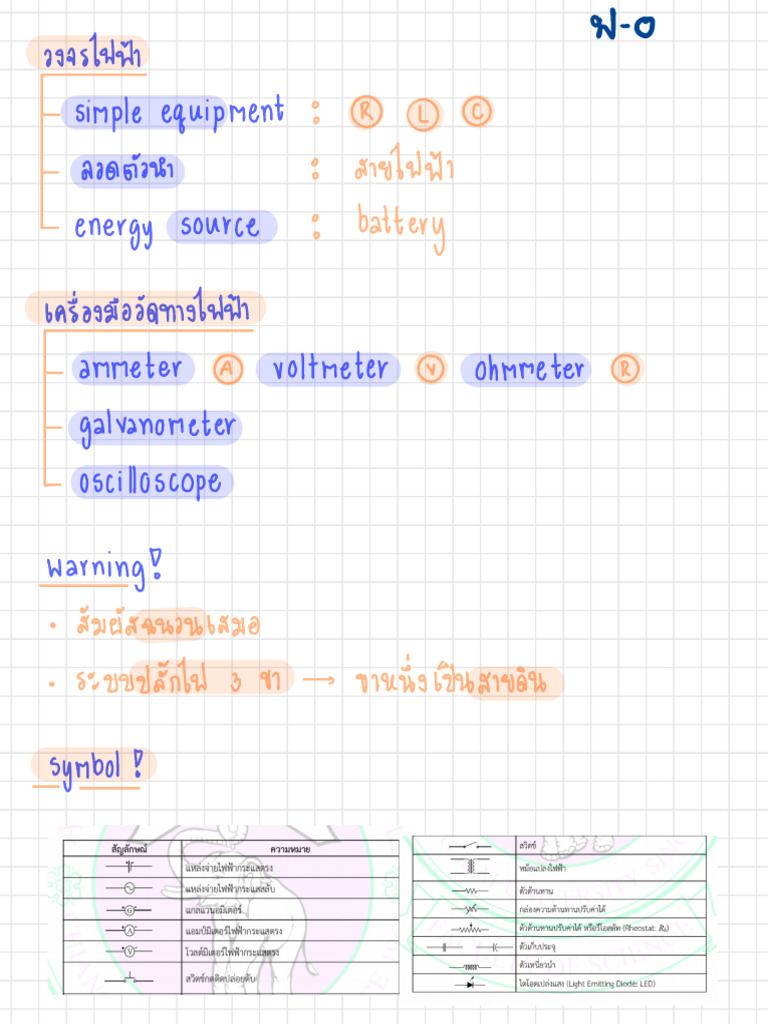 ฟ-0
วงจรไฟฟ้า
simple equipment : R L C
ลวดตัวนำ : สายไฟฟ้า
energy source : battery
เครื่องมือวัดทางไฟฟ้า
ammeter A voltmeter V ohmmeter R
galvanometer
oscilloscope
Warning!
• สัมผัสฉนวนเสมอ
• ระบบปลั๊กไฟ 3 ขา → ขาหนึ่งเป็นสายดิน
symbol!
สัญลักษณ์ ความหมาย
แหล่งจ่ายไฟฟ้ากระแสตรง
แหล่งจ่ายไฟฟ้ากระแสสลับ
G แกลแวนอมิเตอร์
A แอมป์มิเตอร์ไฟฟ้ากระแสตรง
V โวลต์มิเตอร์ไฟฟ้ากระแสตรง
สวิตซ์กดติดปล่อยดับ
สวิตซ์
หม้อแปลงไฟฟ้า
ตัวต้านทาน
กล่องความต้านทานปรับค่าได้
ตัวต้านทานปรับค่าได้ หรือรีโอสตัด (Rheostat: Rₕ)
ตัวเก็บประจุ
ตัวเหนี่ยวนำ
ไดโอดเปล่งแสง (Light Emitting Diode: LED)